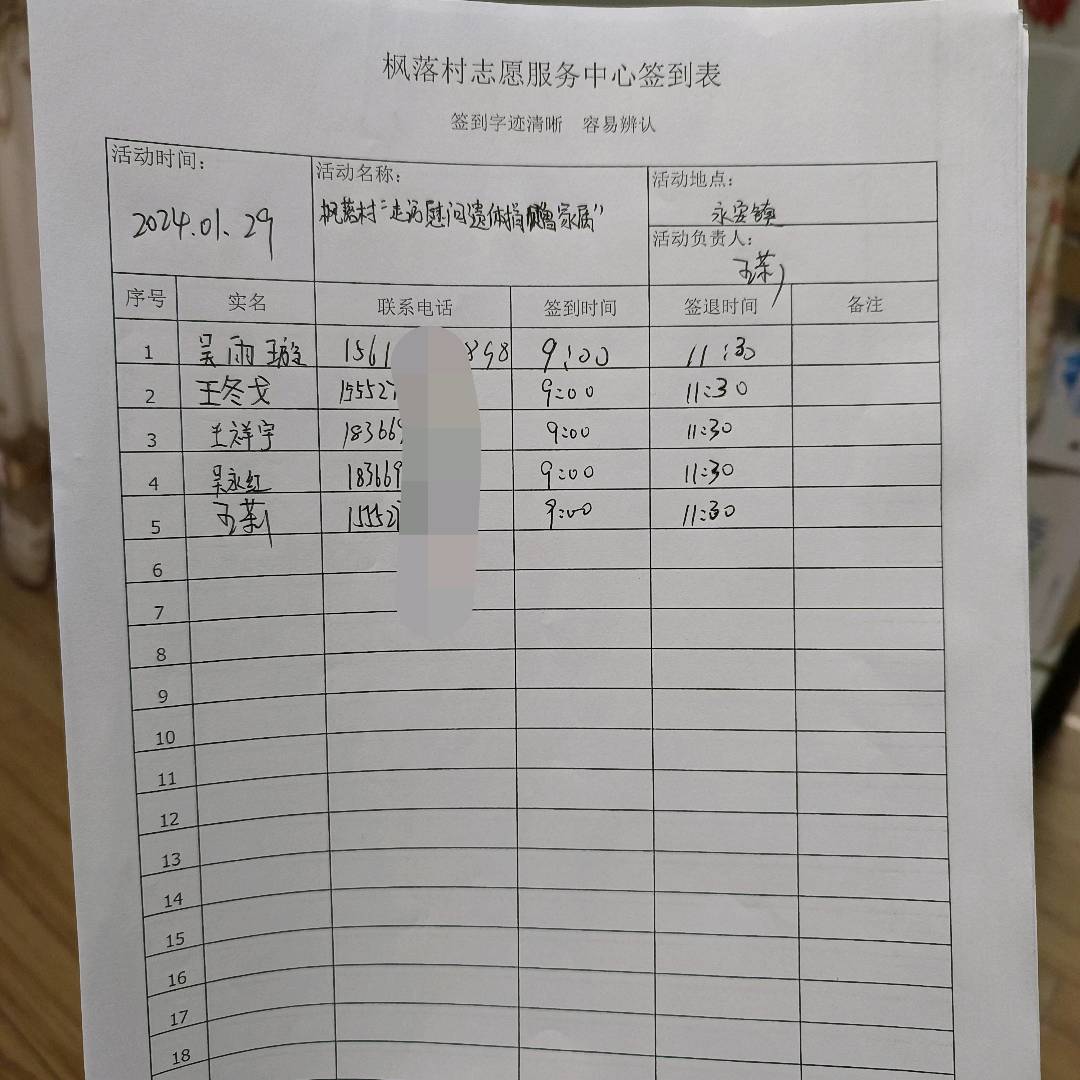 枫落村志愿服务中心签到表
签到字迹清晰 容易辨认
活动时间: 活动名称: 活动地点:
2024.01.29 枫落村"走访慰问遗体捐赠家属" 永安镇
活动负责人:
王茉莉
序号 实名 联系电话 签到时间 签退时间 备注
1 吴雨璇 1561 898 9:00 11:30
2 王冬戈 155527 9:00 11:30
3 王祥宇 18366 9:00 11:30
4 吴永红 183669 9:00 11:30
5 15552 9:00 11:30
6
7
8
9
10
11
12
13
14
15
16
17
18